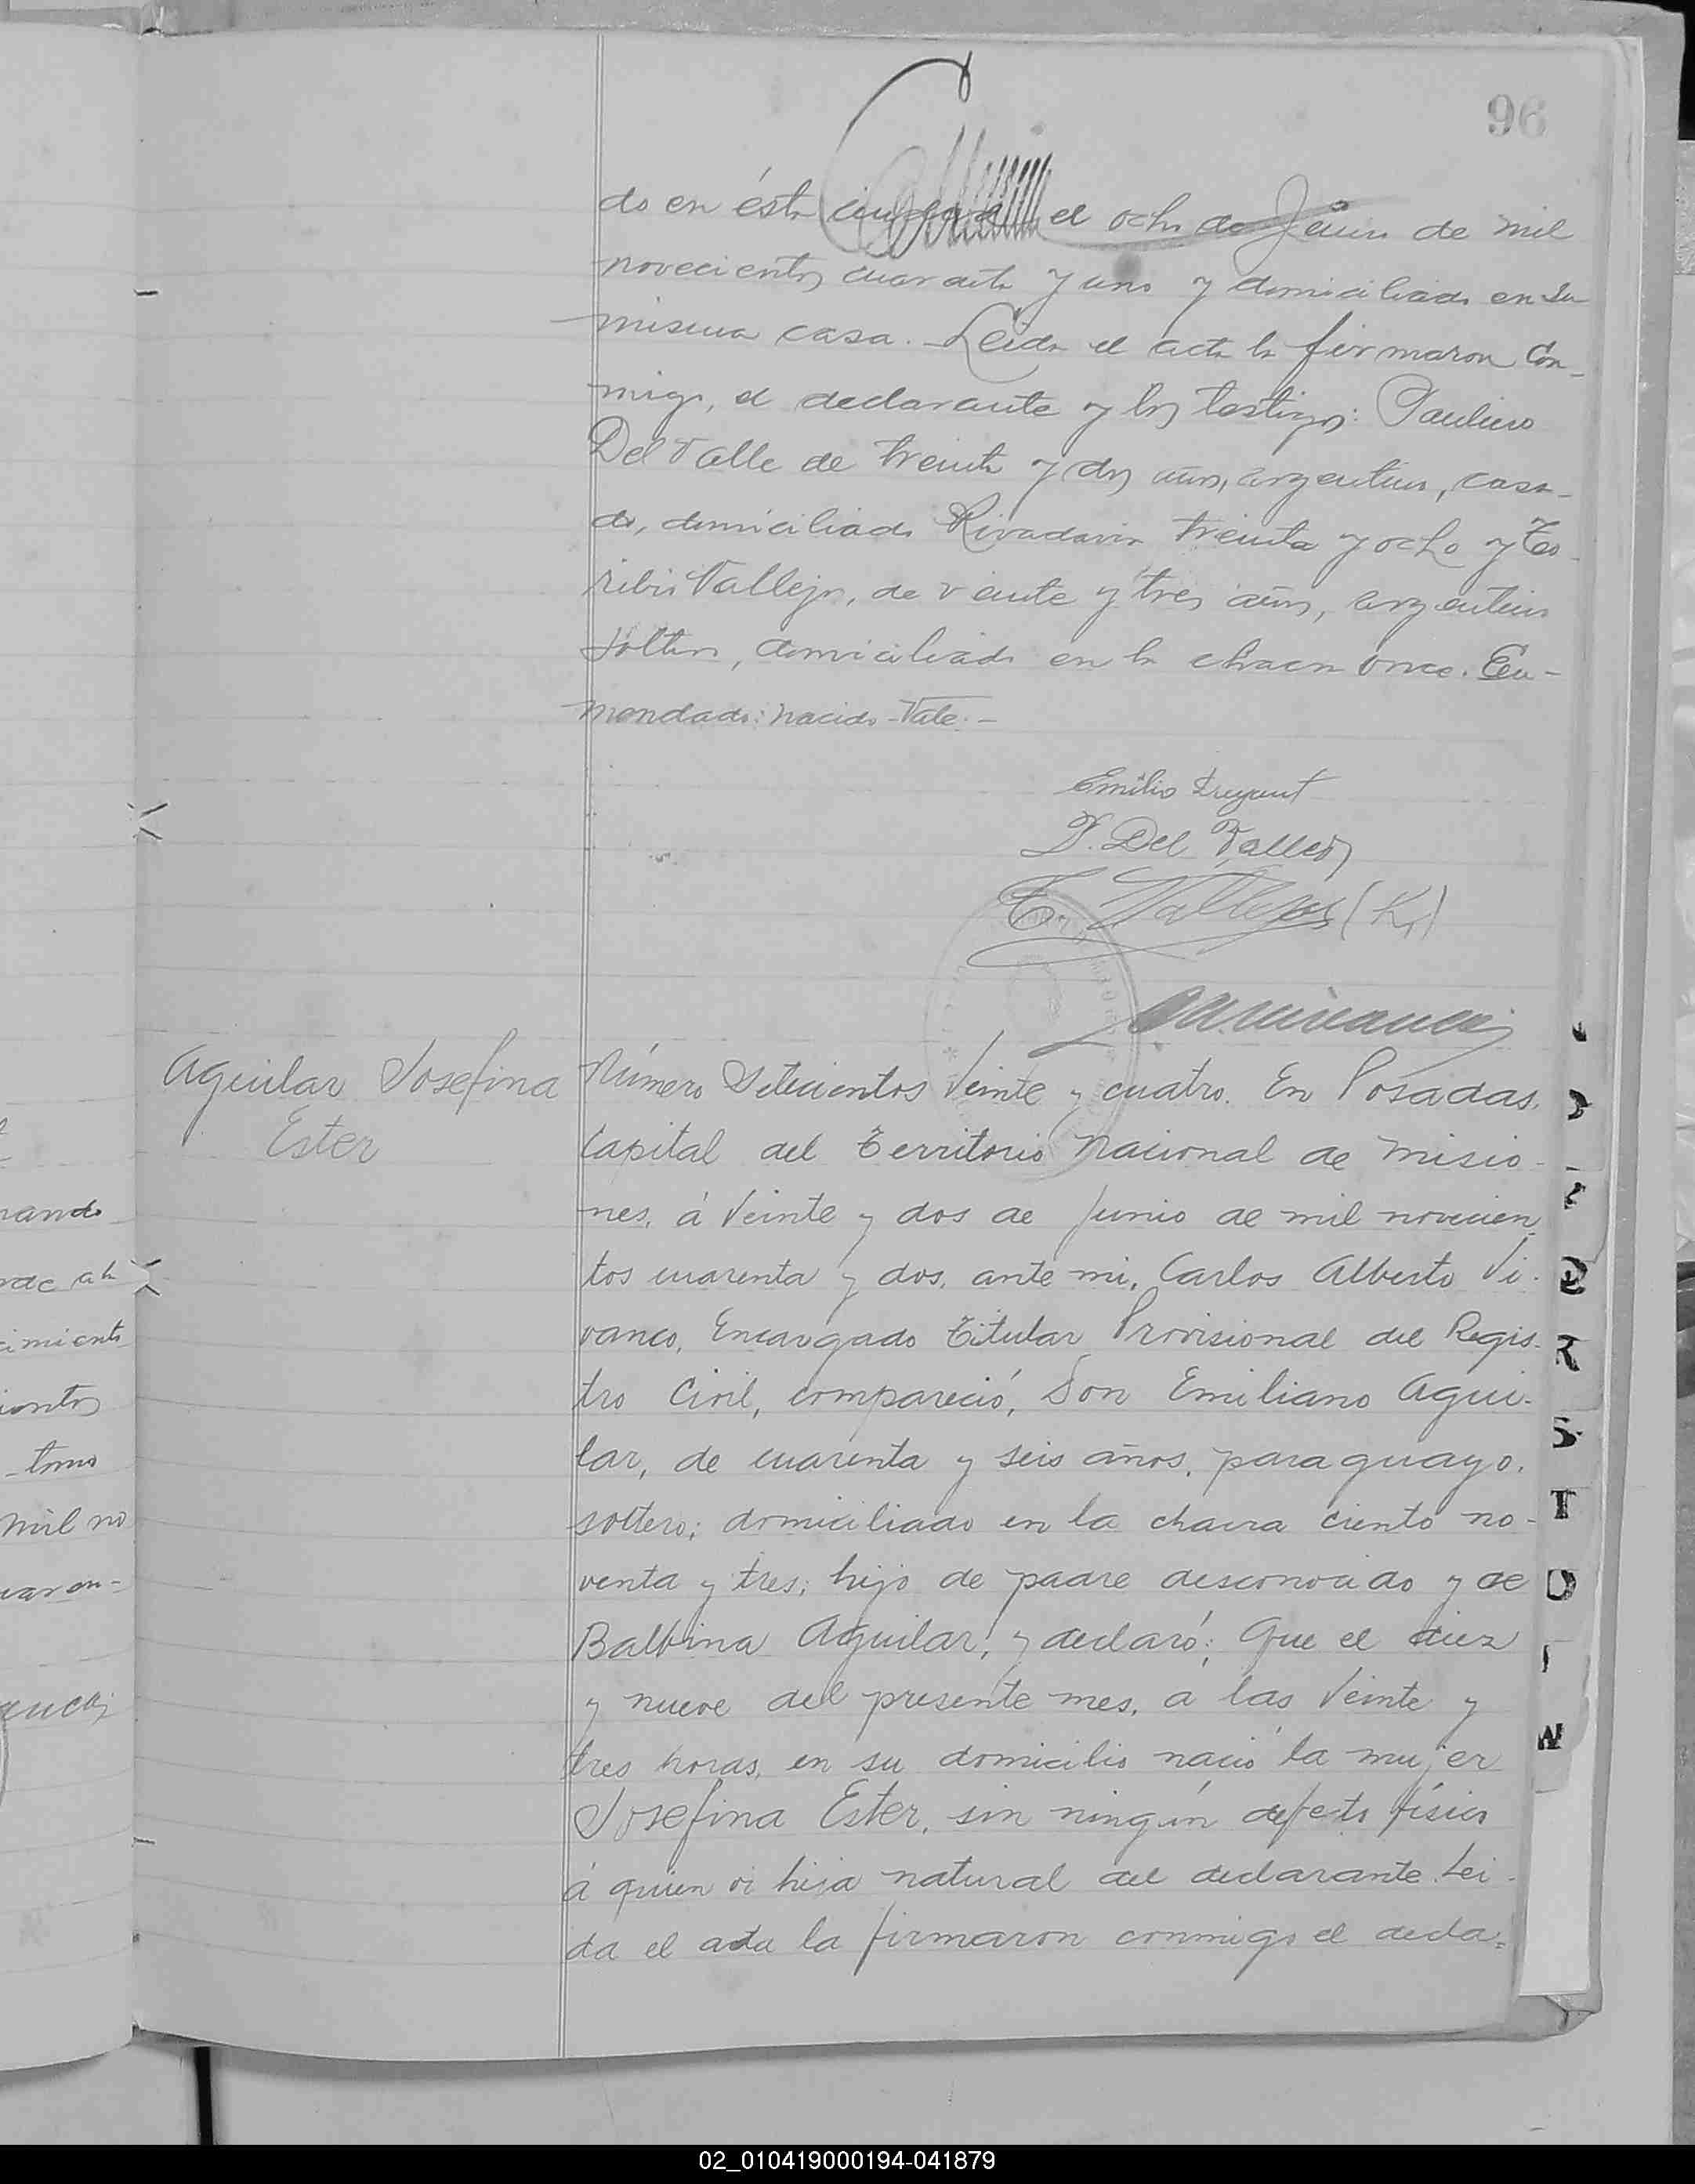 96
do en ésta ciudad el ocho de Junio de mil
novecientos cuarenta y uno y domiciliado en su
misma casa. Leida el acta la firmaron con-
migo, el declarante y los testigos: Paulino
Del Valle de treinta y dos años, argentino, casa-
do, domiciliado Rivadavia treinta y ocho y To-
ribio Vallejos, de veinte y tres años, argentino
soltero, domiciliado en la chacra once. En-
mendado: nacido-Vale.-
Emilio
P. Del Valle
T. Vallejos
Aguilar Josefina
Ester
Número Setecientos Veinte y cuatro. En Posadas,
Capital del Territorio Nacional de Misio-
nes, á Veinte y dos de Junio de mil novecien-
tos cuarenta y dos, ante mi, Carlos Alberto Vi-
vanco, Encargado Titular Provisional del Regis-
tro Civil, compareció, Don Emiliano Agui-
lar, de cuarenta y seis años, paraguayo,
soltero; domiciliado en la chacra ciento no-
venta y tres; hijo de padre desconocido y de
Balbina Aguilar, y declaró: Que el diez
y nueve del presente mes, á las Veinte y
tres horas, en su domicilio nació la mujer
Josefina Ester, sin ningún defecto físico
á quien ví hija natural del declarante. Lei-
da el acta la firmaron conmigo el decla-
R
S
T
W
02_010419000194-041879